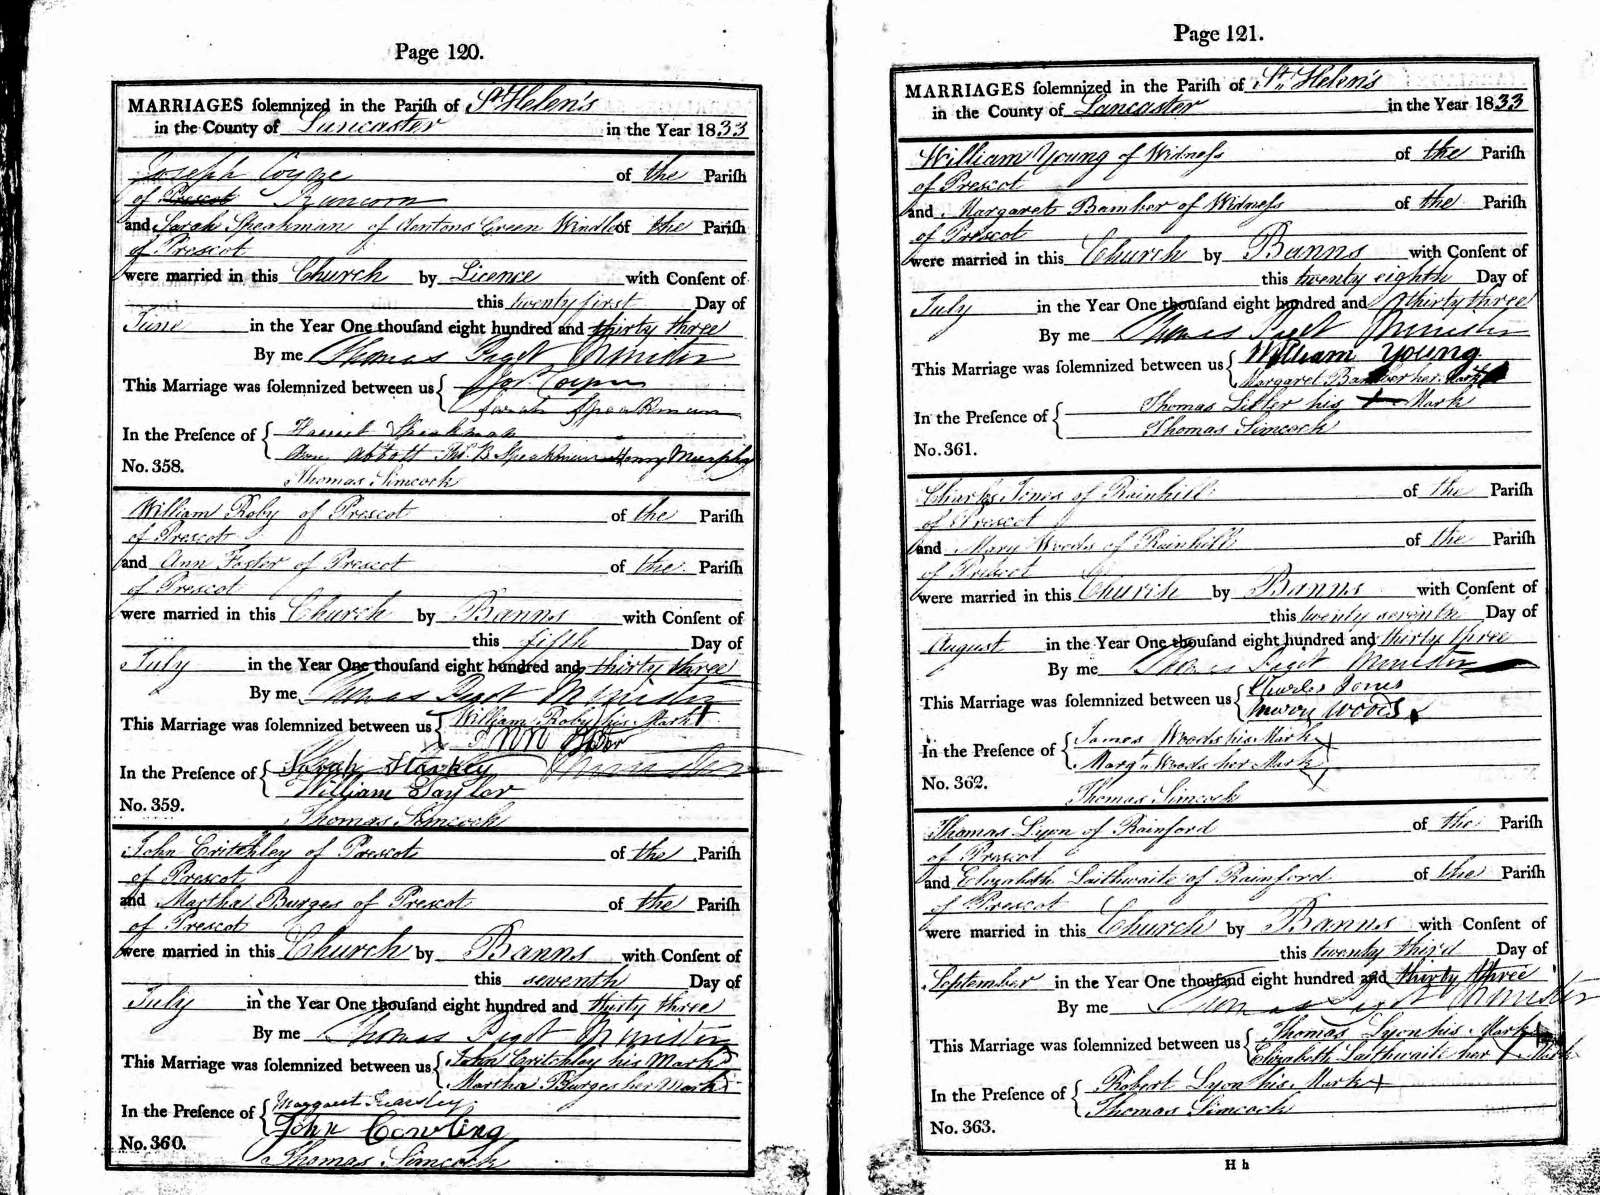 Page 120.
MARRIAGES solemnized in the Parish of St Helen's
in the County of Lancaster in the Year 1833
Joseph Coyne of the Parish
of Prescot Runcorn
and Sarah Speakman of Dentons Green Windle of the Parish
of Prescot
were married in this Church by Licence with Consent of
this twenty first Day of
June in the Year One thousand eight hundred and thirty three
By me Thomas Pigot Minister
This Marriage was solemnized between us { Jos.
Sarah Speakman
In the Presence of { Harriet Speakman
Ann Abbott Thos. B Speakman Henry Murphy
No. 358.
Thomas Simcock
William Roby of Prescot of the Parish
of Prescot
and Ann Foster of Prescot of the Parish
of Prescot
were married in this Church by Banns with Consent of
this fifth Day of
July in the Year One thousand eight hundred and thirty three
By me Thomas Pigot Minister
This Marriage was solemnized between us { William Roby his Mark
Ann
In the Presence of { Sarah
William Taylor
No. 359.
Thomas Simcock
John Critchley of Prescot of the Parish
of Prescot
and Martha Burges of Prescot of the Parish
of Prescot
were married in this Church by Banns with Consent of
this seventh Day of
July in the Year One thousand eight hundred and thirty three
By me Thomas Pigot Minister
This Marriage was solemnized between us { John Critchley his Mark
Martha Burges her Mark
In the Presence of { Margaret
John Cowling
No. 360.
Thomas Simcock
Page 121.
MARRIAGES solemnized in the Parish of St. Helen's
in the County of Lancaster in the Year 1833
William Young of Widness of the Parish
of Prescot
and Margaret Bamber of Widness of the Parish
of Prescot
were married in this Church by Banns with Consent of
this twenty eighth Day of
July in the Year One thousand eight hundred and thirty three
By me Thomas Pigot Minister
This Marriage was solemnized between us { William Young
Margaret Bamber her Mark
In the Presence of { Thomas Litler his + Mark
Thomas Simcock
No. 361.
Charles Jones of Rainhill of the Parish
of Prescot
and Mary Woods of Rainhill of the Parish
of Prescot
were married in this Church by Banns with Consent of
this twenty seventh Day of
August in the Year One thousand eight hundred and thirty three
By me Thomas Pigot Minister
This Marriage was solemnized between us { Charles Jones
Mary Woods
In the Presence of { James Woods his Mark X
Margt. Woods her Mark X
No. 362.
Thomas Simcock
Thomas Lyon of Rainford of the Parish
of Prescot
and Elizabeth Laithwaite of Rainford of the Parish
of Prescot
were married in this Church by Banns with Consent of
this twenty third Day of
September in the Year One thousand eight hundred and thirty three
By me Thomas Pigot Minister
This Marriage was solemnized between us { Thomas Lyon his Mark
Elizabeth Laithwaite her + Mark
In the Presence of { Robert Lyon his Mark +
Thomas Simcock
No. 363.
H h